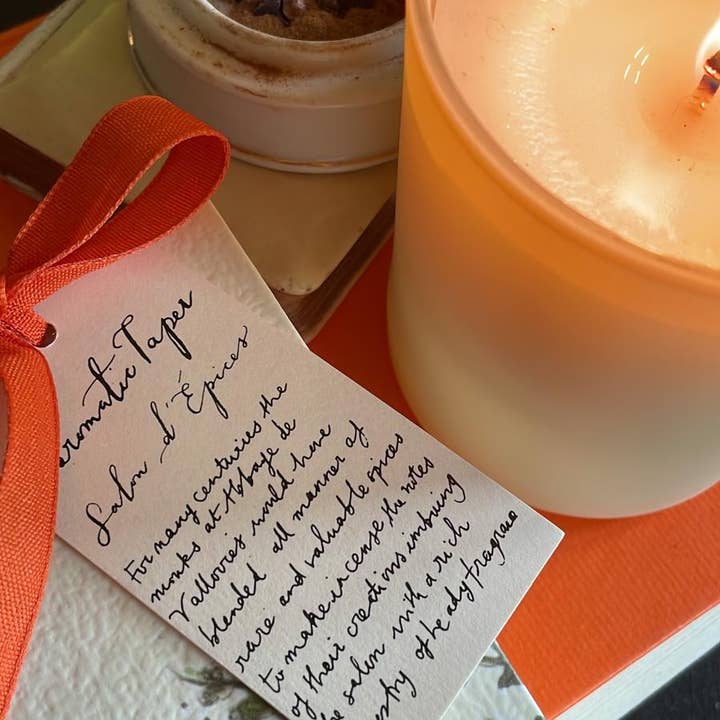 aromatic Taper
Salon d'Épices
For many centuries the
monks at Abbaye de
Vallovies would have
blended all manner of
rare and valuable spices
to make incense the notes
of their creations imbuing
the salon with a rich
of heady fragrance